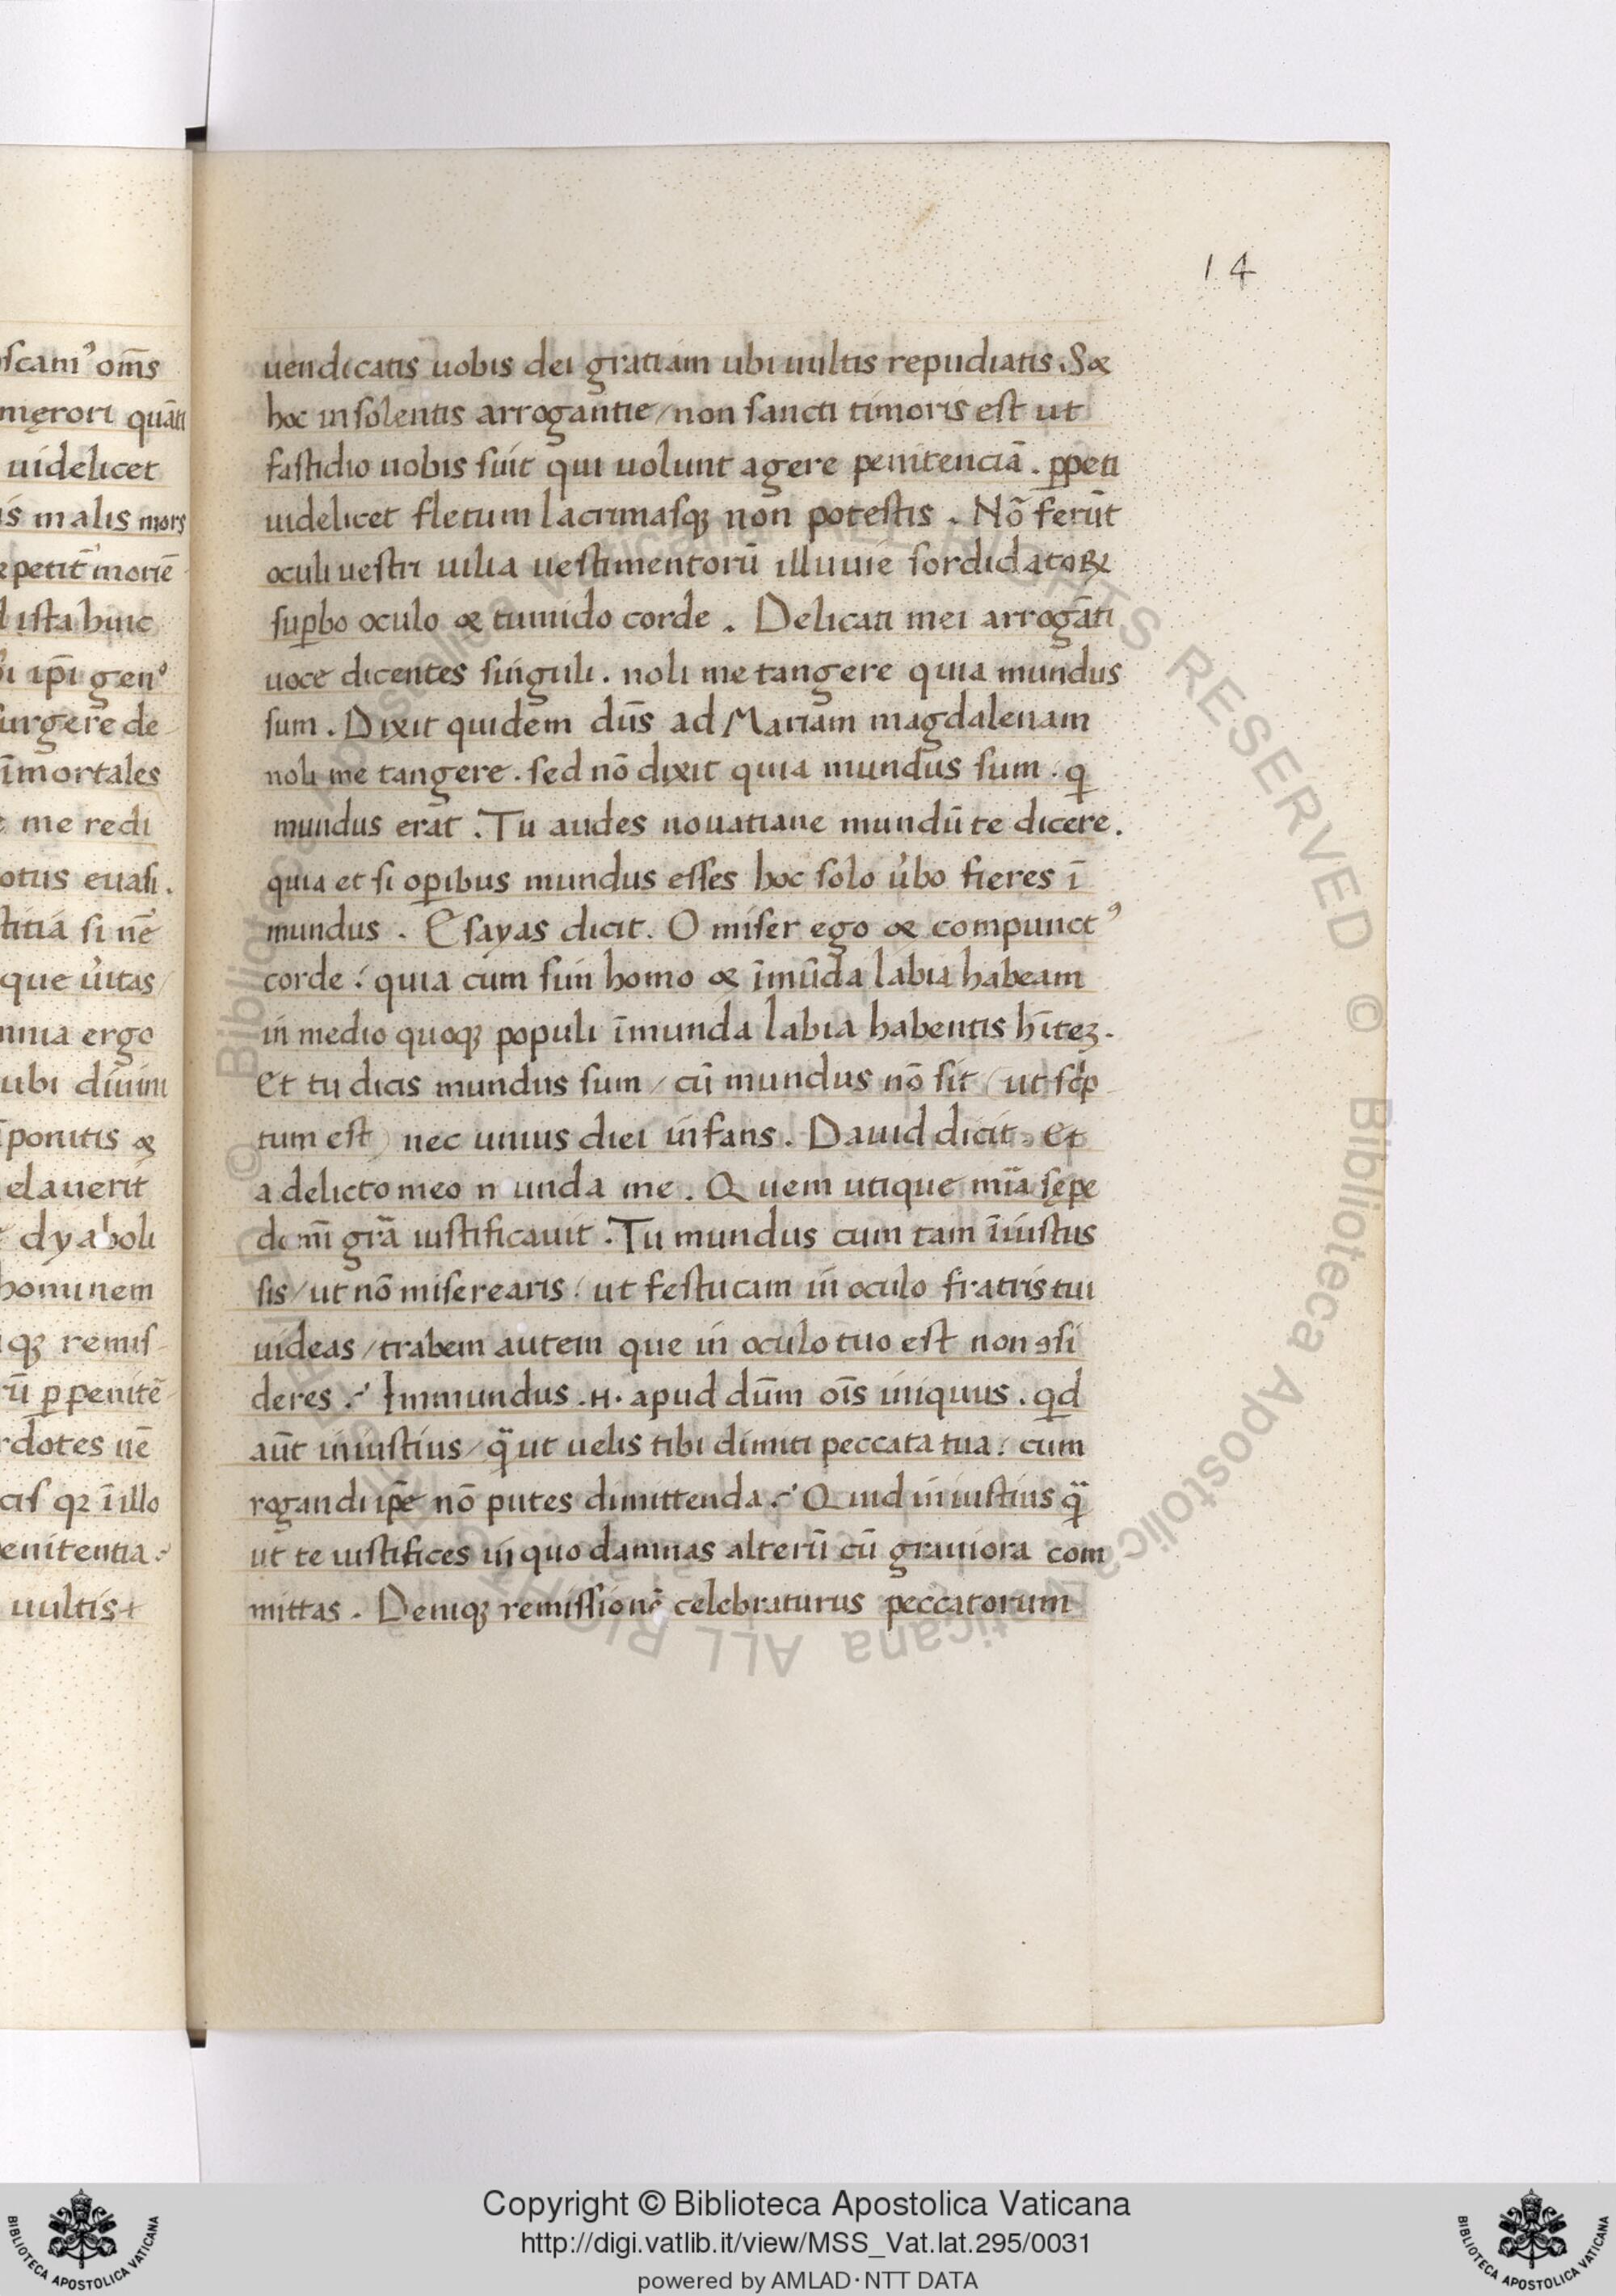 scam᾽ om̅s
męrori quāti
uidelicet
is malis mors
petit̅ morie̅
ista huic
ip̅i gen᾽
urgere de
īmortales
me redi
otus euasi.
titia si ne̅
que u᾽itas/
mnia ergo
ubi diuini
ponitis &
elauerit
dyaboli
hominem
q; remis
rū p̲ penitē
rdotes uē
cis qꝫ ī illo
enitentia
uultis
14
uendicatis uobis dei gratiam ubi uultis repudiatis. S&
hoc insolentis arrogantie/non sancti timoris est ut
fastidio uobis sint qui uolunt agere penitenciā. ꝑpeti
uidelicet fletum lacrimasqꝫ non potestis. Nō ferūt
oculi uestri uilia uestimentorū illuuie sordidatoꝝ
suꝑbo oculo & tumido corde. Delicati mei arrogāti
uoce dicentes singuli. noli me tangere quia mundus
sum. Dixit quidem dn̄s ad Mariam magdalenam
noli me tangere. sed nō dixit quia mundus sum. q̇
mundus erat. Tu audes nouatiane mundū te dicere.
quia et si oꝑibus mundus esses hoc solo u᾽bo fieres ī
mundus. Esayas dicit. O miser ego & compunctꝰ
corde: quia cum sim homo & īmūda labia habeam
in medio quoqꝫ populi īmunda labia habentis hītez.
Et tu dicis mundus sum/cū mundus nō sit (ut scͥp
tum est) nec unius diei infans. Dauid dicit. Et
a delicto meo munda me. Quem utique mīa sępe
domī grā iustificauit. Tu mundus cum tam īiustus
sis/ut nō miserearis/ut festucam in oculo fratris tui
uideas/trabem autem que in oculo tuo est non ꝯsi
deres. Immundus .н. apud dūm oīs iniquus. qd
aūt iniustius/qͣ ut uelis tibi dimitti peccata tua: cum
rogandi ip̄e nō putes dimittenda. Quid iniustius qͣ
ut te iustifices in quo damnas alterū cū grauiora com
mittas. Deniqꝫ remissionē celebraturus peccatorum
Copyright © Biblioteca Apostolica Vaticana
http://digi.vatlib.it/view/MSS_Vat.lat.295/0031
powered by AMLAD·NTT DATA
BIBLIOTECA APOSTOLICA VATICANA
BIBLIOTECA APOSTOLICA VATICANA
© Biblioteca Apostolica Vaticana ALL RIGHTS RESERVED
© Biblioteca Apostolica Vaticana ALL RIGHTS RESERVED